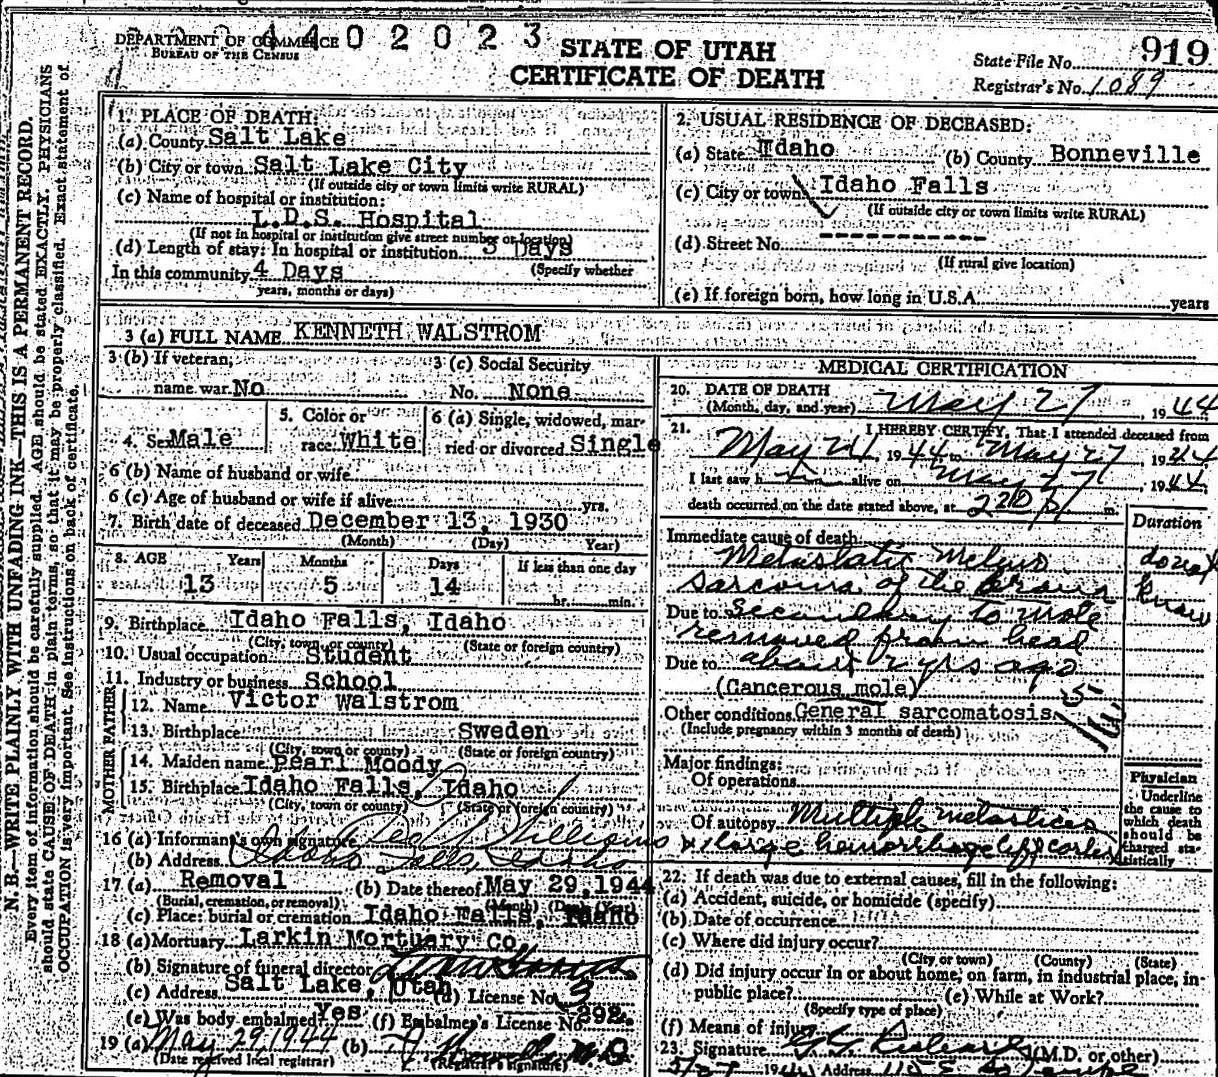 4402023
DEPARTMENT OF COMMERCE
BUREAU OF THE CENSUS
STATE OF UTAH
CERTIFICATE OF DEATH
State File No. 919
Registrar's No. 1089
N. B.—WRITE PLAINLY WITH UNFADING INK—THIS IS A PERMANENT RECORD.
Every item of information should be carefully supplied. AGE should be stated EXACTLY. PHYSICIANS
should state CAUSE OF DEATH in plain terms, so that it may be properly classified. Exact statement of
OCCUPATION is very important. See instructions on back of certificate.
1. PLACE OF DEATH:
(a) County Salt Lake
(b) City or town Salt Lake City
(If outside city or town limits write RURAL)
(c) Name of hospital or institution:
L.D.S. Hospital
(If not in hospital or institution give street number or location)
(d) Length of stay: In hospital or institution 3 Days
In this community 4 Days (Specify whether
years, months or days)
2. USUAL RESIDENCE OF DECEASED:
(a) State Idaho (b) County Bonneville
(c) City or town Idaho Falls
(If outside city or town limits write RURAL)
(d) Street No. -----------
(If rural give location)
(e) If foreign born, how long in U.S.A. years
3 (a) FULL NAME KENNETH WALSTROM
3 (b) If veteran, name war No
3 (c) Social Security No. None
4. Sex Male
5. Color or race White
6 (a) Single, widowed, married or divorced Single
6 (b) Name of husband or wife
6 (c) Age of husband or wife if alive yrs.
7. Birth date of deceased December 13, 1930
(Month) (Day) Year)
8. AGE Years Months Days If less than one day
13 5 14 hr. min.
9. Birthplace Idaho Falls, Idaho
(City, town or county) (State or foreign country)
10. Usual occupation Student
11. Industry or business School
FATHER
12. Name Victor Walstrom
13. Birthplace Sweden
(City, town or county) (State or foreign country)
MOTHER
14. Maiden name Pearl Moody
15. Birthplace Idaho Falls, Idaho
(City, town or county) (State or foreign country)
16 (a) Informant's own signature Williams
(b) Address Idaho Falls, Idaho
17 (a) Removal (b) Date thereof May 29, 1944
(Burial, cremation, or removal) (Month) (Day) (Year)
(c) Place: burial or cremation Idaho Falls, Idaho
18 (a) Mortuary Larkin Mortuary Co.
(b) Signature of funeral director
(c) Address Salt Lake, Utah (d) License No. 3
(e) Was body embalmed? Yes (f) Embalmer's License No. 292
19 (a) May 29, 1944 (b) M.D.
(Date received local registrar) (Registrar's signature)
MEDICAL CERTIFICATION
20. DATE OF DEATH
(Month, day, and year) May 27, 1944
21. I HEREBY CERTIFY, That I attended deceased from
May 24, 1944 to May 27, 1944
I last saw h im alive on May 27, 1944
death occurred on the date stated above, at 2 20 P m.
Duration
Immediate cause of death
Metastatic Melano
sarcoma of the brain
dont know
Due to Secondary to mole
removed from head
Due to about 2 yrs ago
(Cancerous mole)
Other conditions General sarcomatosis
(Include pregnancy within 3 months of death)
Major findings:
Of operations
Of autopsy Multiple metastices
& large hemorrhage left cortex
Physician
Underline
the cause to
which death
should be
charged sta-
tistically
22. If death was due to external causes, fill in the following:
(a) Accident, suicide, or homicide (specify)
(b) Date of occurrence
(c) Where did injury occur?
(City or town) (County) (State)
(d) Did injury occur in or about home, on farm, in industrial place, in
public place? (e) While at Work?
(Specify type of place)
(f) Means of injury
23. Signature (M.D. or other)
5/27 1944 Address